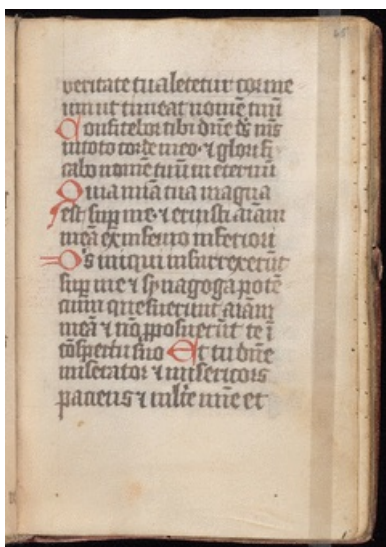 veritate tua letetur cor me
um ut timeat nomē tuū
Confitebor tibi dn̄e dſ mſ
in toto corde meo · ⁊ glorifi
cabo nomē tuū in eternū
Quia mīa tua magna
est sup̄ me · ⁊ eruisti aīam
meā ex inferno inferiori
Ds iniqui insurrexerūt
sup̄ me ⁊ synagoga potē
tium quesierunt aīam
meā ⁊ nō p̄posuerūt te ī
cōspectu suo Et tu dn̄e
miserator ⁊ misericors
paciens ⁊ mlte mīe et